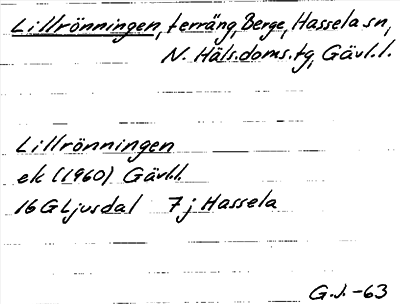 Lillrönningen, terräng, Berge, Hassela sn,
N. Häls.doms.tg, Gävl.l.
Lillrönningen
ek (1960) Gävl.l.
16G Ljusdal 7j Hassela
G.J. -63